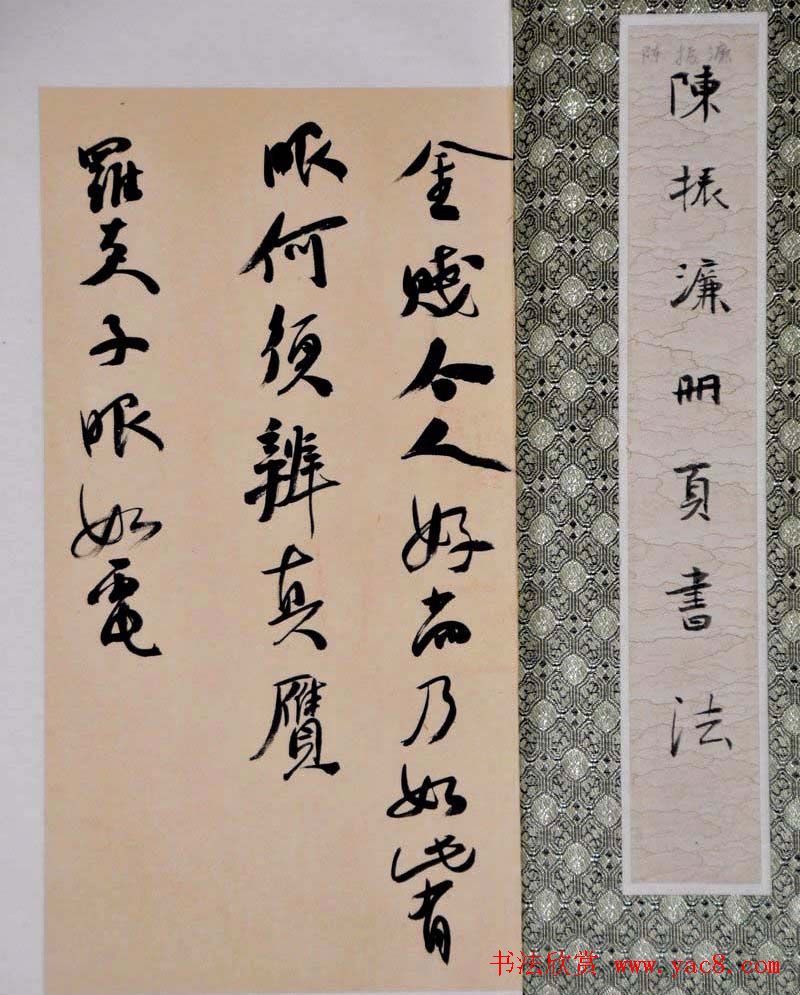 陈振濂
陳振濂冊頁書法
金賤今人好尚乃如此有
眼何須辨真贗
羅夫子眼如電
书法欣赏 www.yac8.com